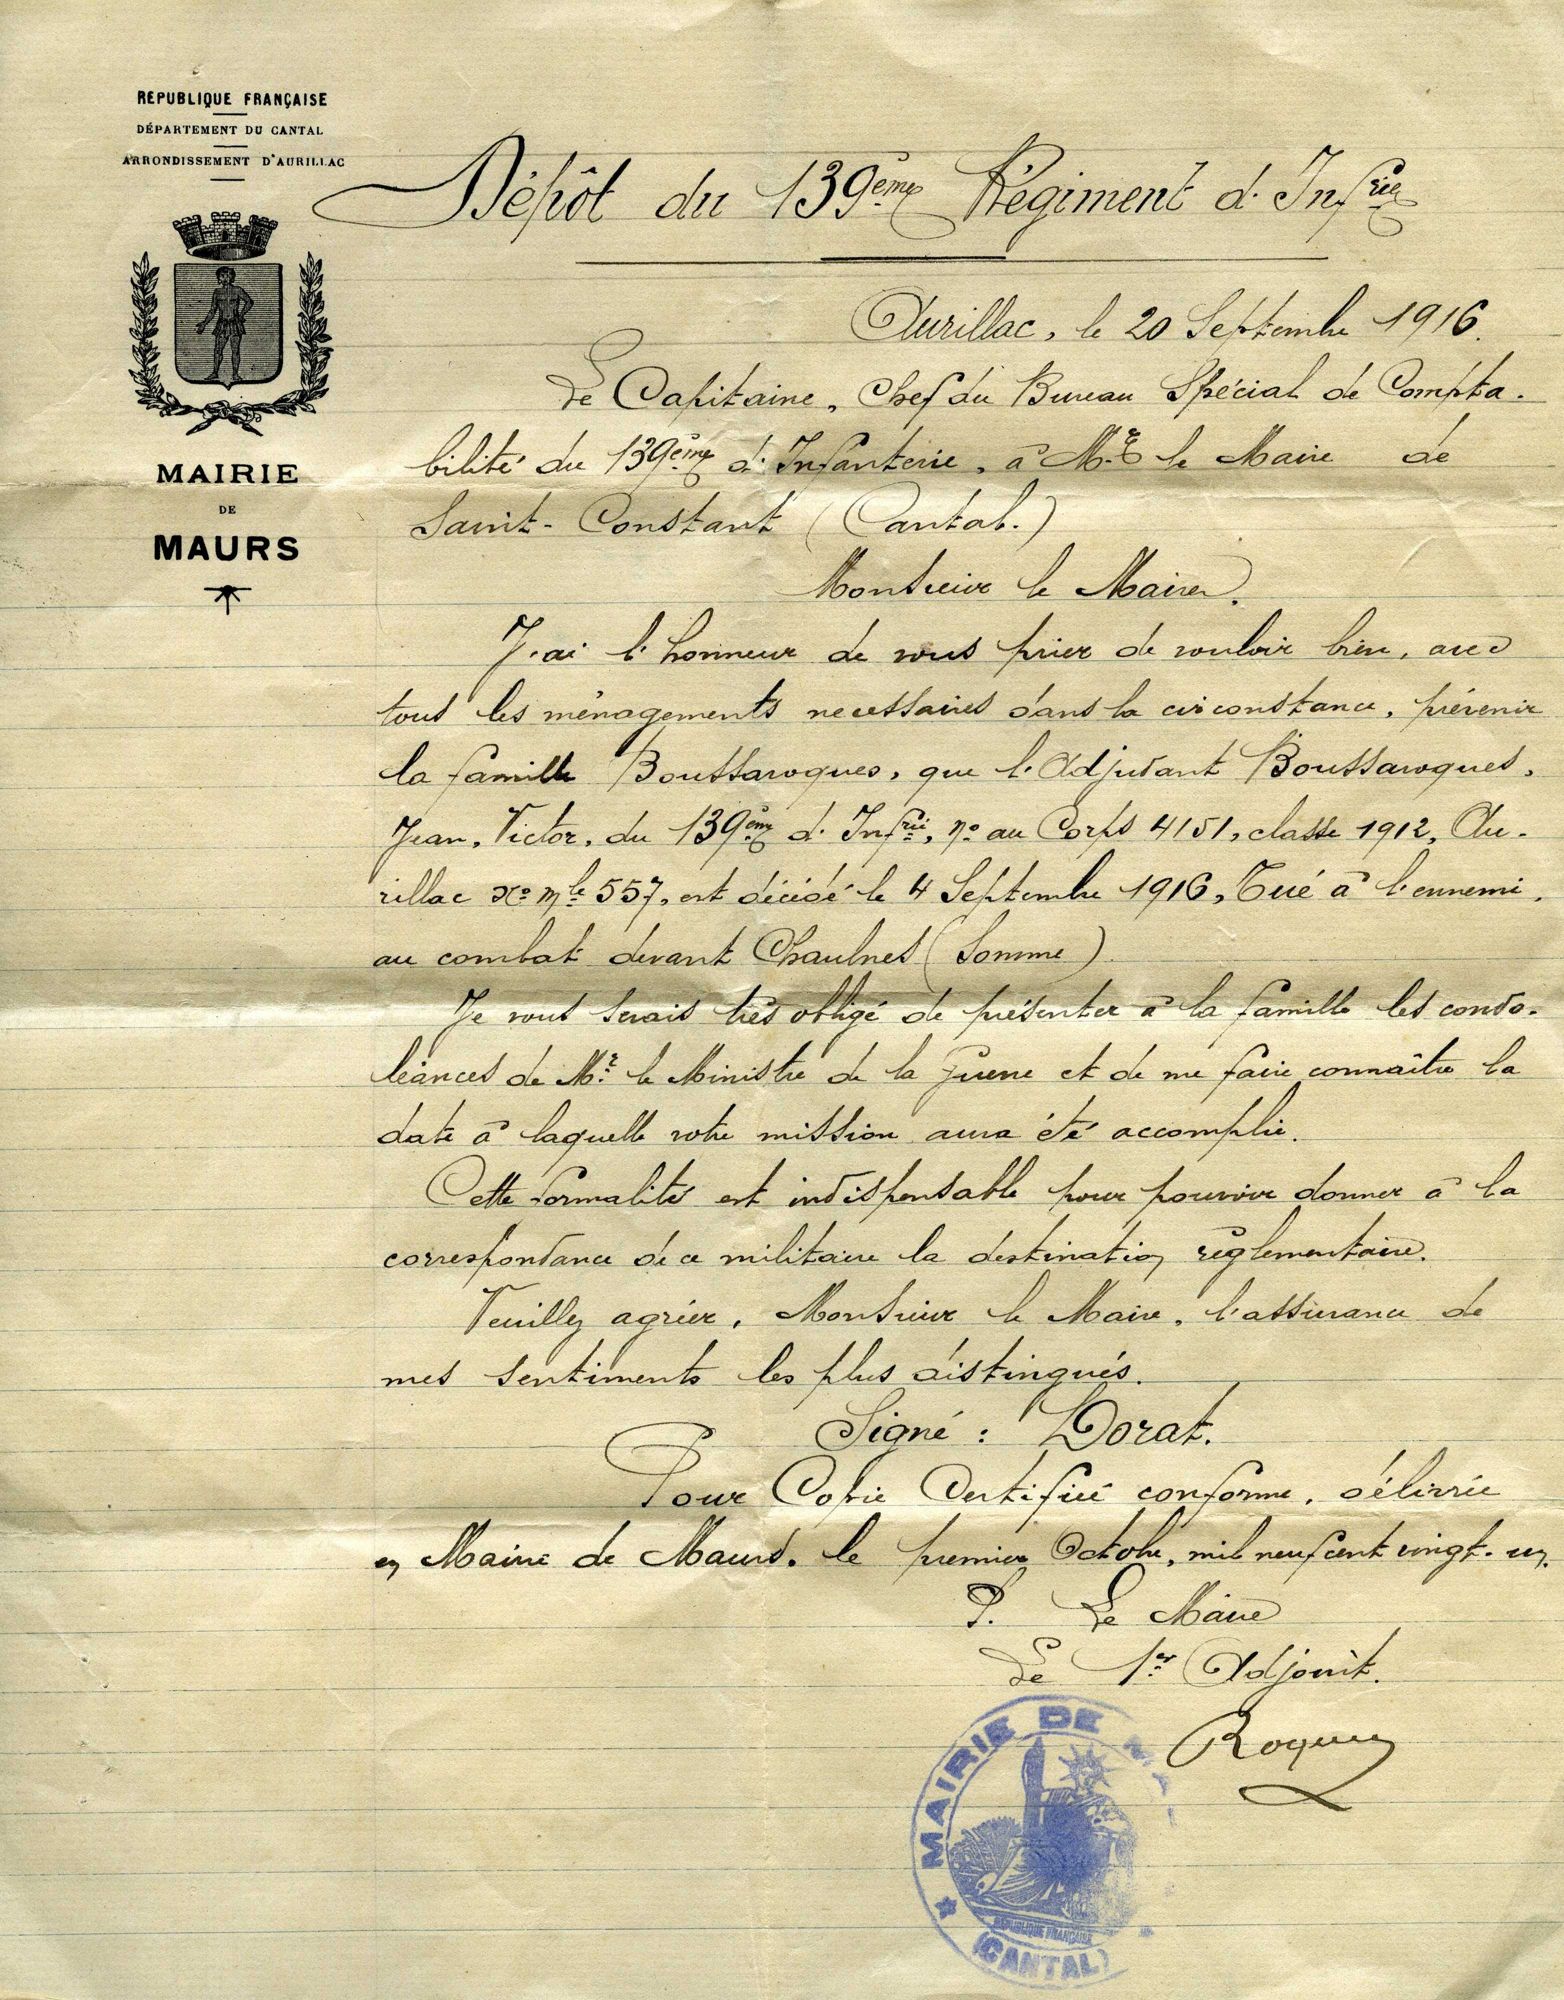 REPUBLIQUE FRANÇAISE
DÉPARTEMENT DU CANTAL
ARRONDISSEMENT D'AURILLAC
MAIRIE
DE
MAURS
Dépôt du 139ème Régiment d'Infrie
Aurillac, le 20 Septembre 1916.
Le Capitaine, Chef du Bureau Spécial de Compta-
bilité du 139ème d'Infanterie, à Mr le Maire de
Saint-Constant (Cantal.)
Monsieur le Maire,
J'ai l'honneur de vous prier de vouloir bien, avec
tous les ménagements necessaires dans la circonstance, prévenir
la famille Boussaroques, que l'Adjudant Boussaroques,
Jean, Victor, du 139ème d'Infrie, no au Corps 4151, classe 1912, Au-
rillac No Mle 557, est décédé le 4 Septembre 1916, Tué à l'ennemi,
au combat devant Chaulnes (Somme)
Je vous serais très obligé de présenter à la famille les condo-
léances de Mr le Ministre de la Guerre et de me faire connaître la
date à laquelle votre mission aura été accomplie.
Cette formalité est indispensable pour pouvoir donner à la
correspondance de ce militaire la destination règlementaire.
Veuillez agréer, Monsieur le Maire, l'assurance de
mes sentiments les plus distingués.
Signé : Dorat.
Pour Copie Certifiée conforme, délivrée
en Mairie de Maurs, le premier Octobre, mil neuf cent vingt-un.
P. Le Maire
Le 1er Adjoint.
Roques
MAIRIE DE MA
REPUBLIQUE FRANÇAISE
(CANTAL)